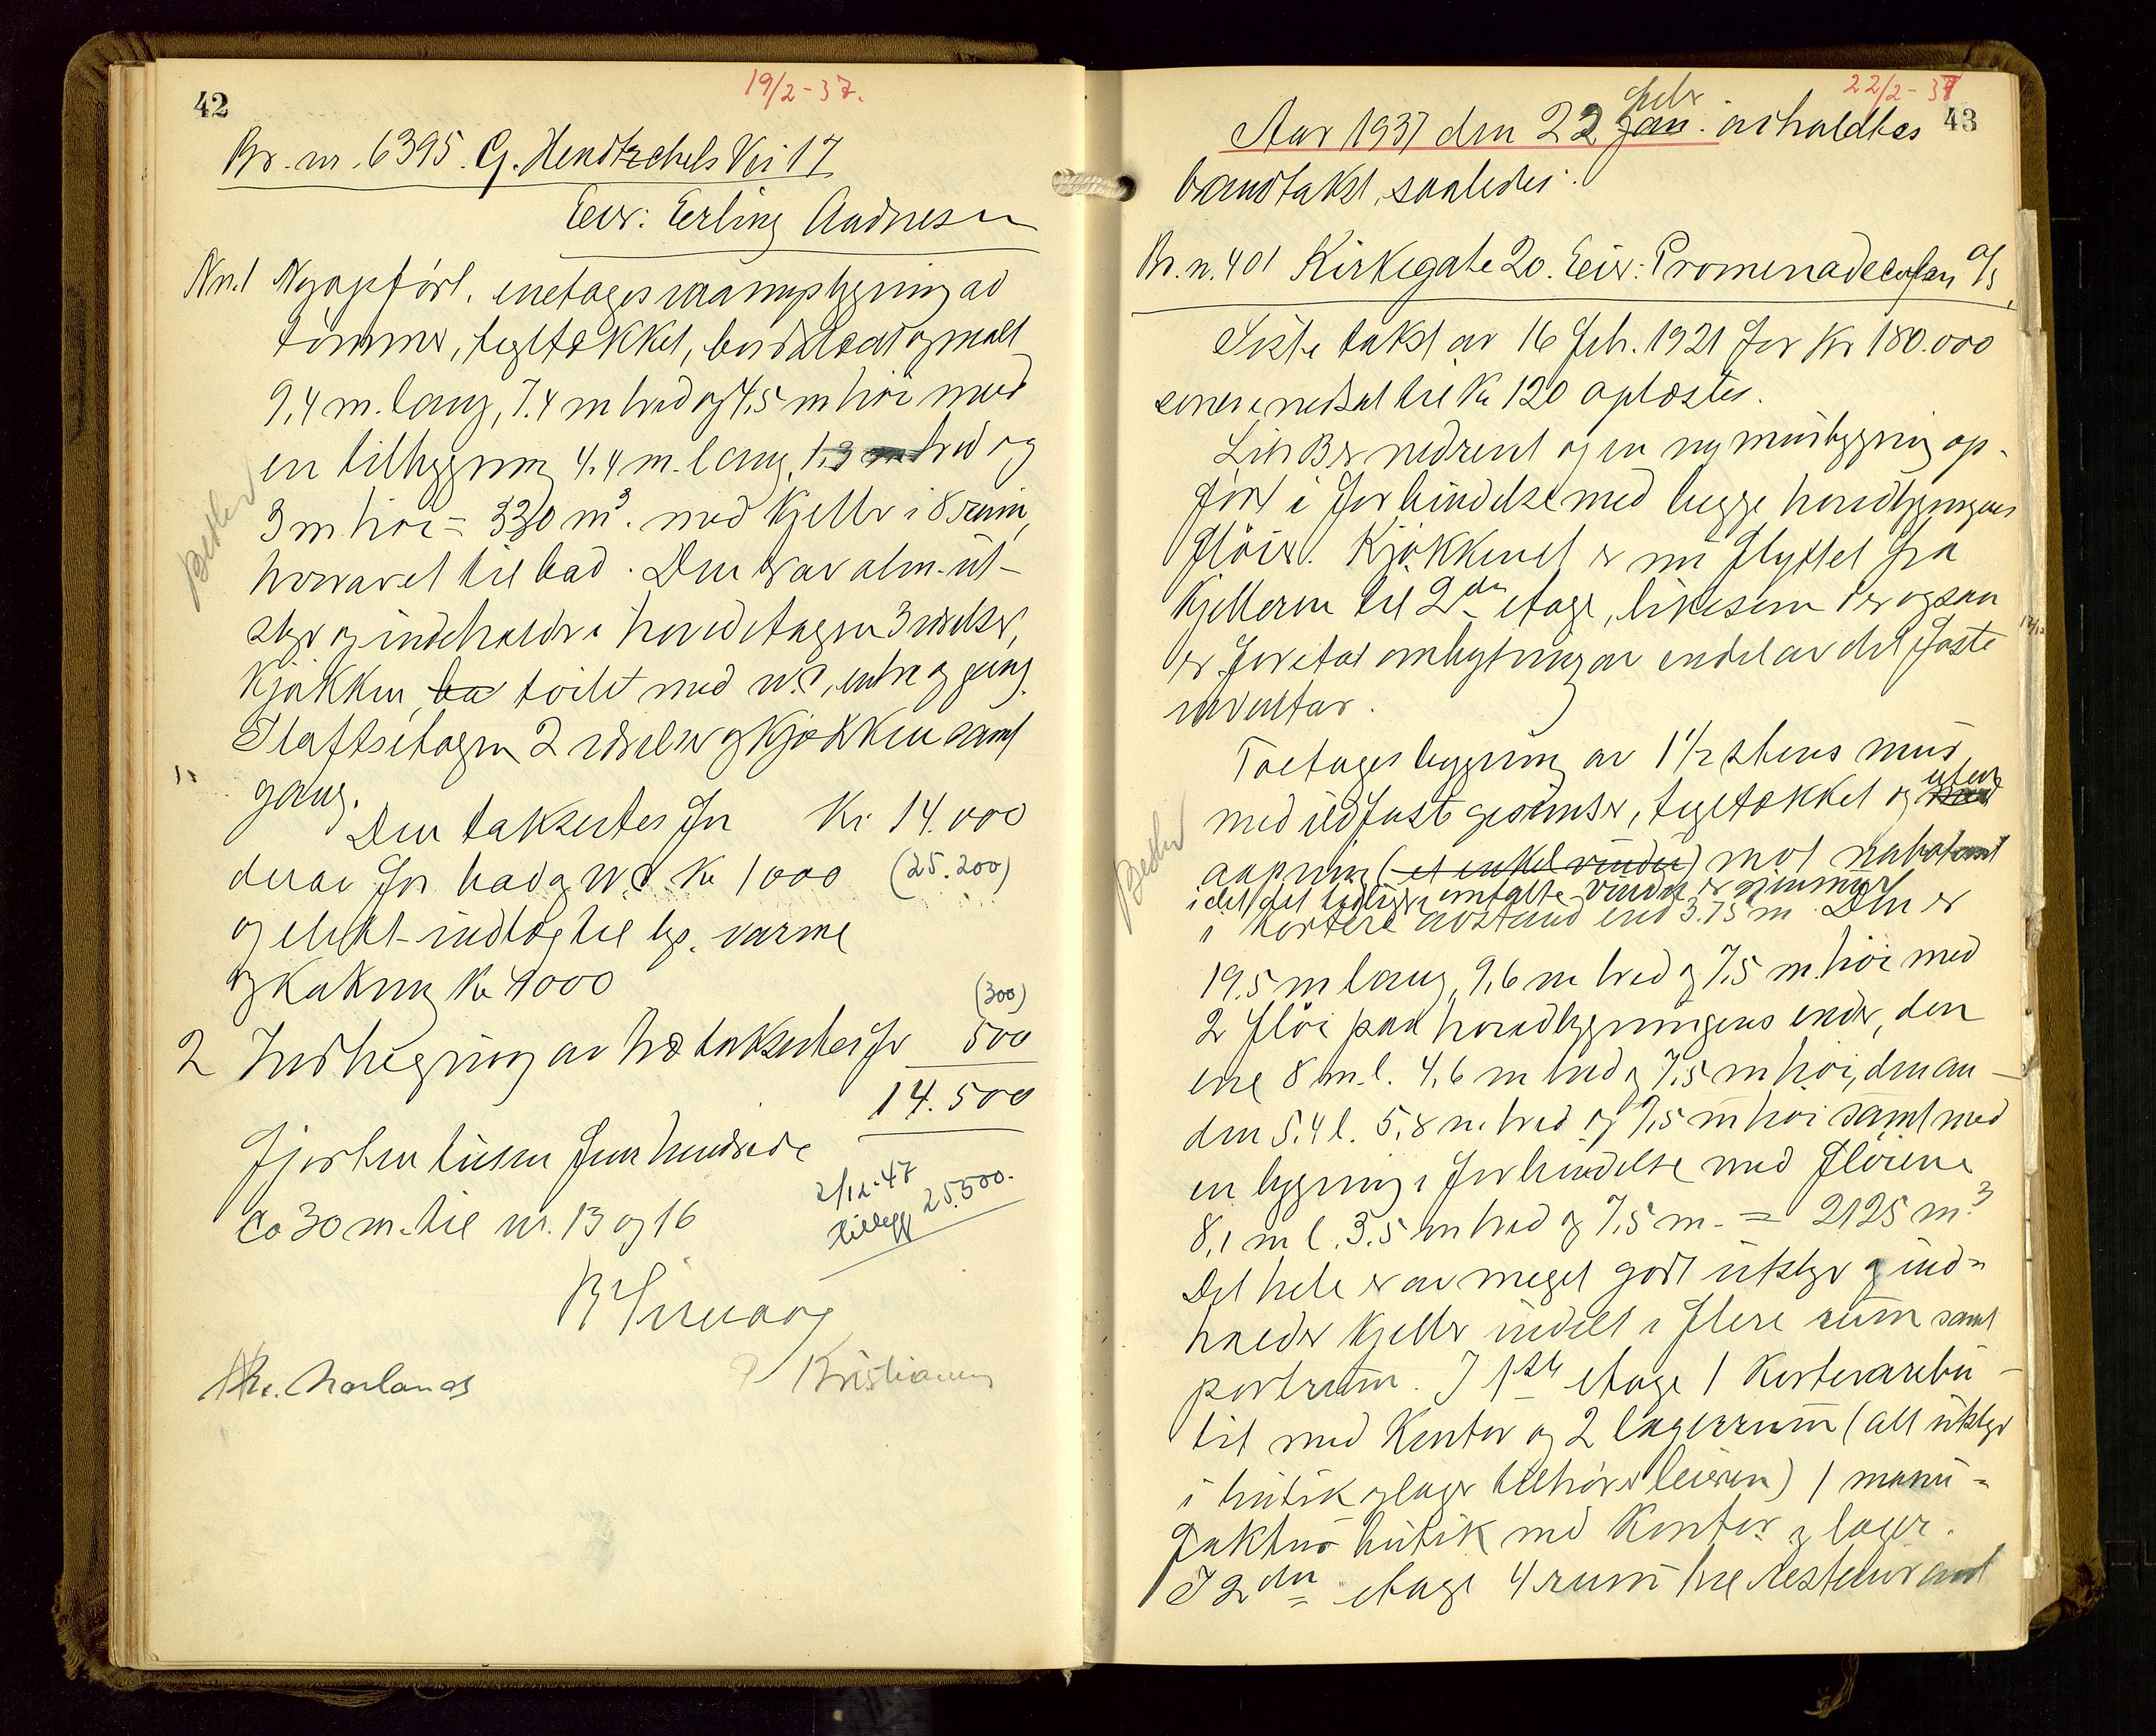 42
19/2-37.
Br. nr. 6395. G. Hendtzchels Vei 17
Eier: Erling Andresen
No. 1 Nyopført, enetages vaaningsbygning av
tømmer, tegltækket, bordklædt og malt
9,4 m. lang, 7.4 m bred og 4,5 m høi med
en tilbygning 4.4 m. lang, 1,3 m bred og
3 m høi = 330 m³. med kjeller i 8 rum,
hvorav et til bad. Den er av alm. ut-
styr og indeholder i hovedetagen 3 værelser,
kjøkken, ba toilet med w.c, entre og gang.
I loftsetagen 2 værelser og kjøkken samt
gang.
Den takseres for Kr 14.000
derav for bad og W.C Kr 1000 (25.200)
og elekt. indlæg til lys. varme
og kokning Kr 4000
(300)
2 Indhegning av træ takseres for 500
14.500
Fjorten tusen fem hundrede
Ca 30 m. til nr. 13 og 16
2/12-47
tillegg 25.500.
Kristiansen
Besiktet
22/2-37
43
febr
Aar 1937 den 22 jan. avholdtes
brandtakst, saaledes:
Br. n. 401 Kirkegate 20. Eier: Promenadecafeen A/S
Siste takst av 16 feb. 1921 for Kr 180.000
senere nedsat til Kr 120 oplæstes.
Litr B er nedrevet og en ny murbygning op-
ført i forbindelse med begge hovedbygningens
fløier. Kjøkkenet er nu flyttet fra
kjelleren til 2den etage, likesom der ogsaa
er foretat ombygning av endel av det faste
inventar.
Toetages bygning av 1½ stens mur
med ildfast gesimser, tegltækket og med uten
aapning (et enkel vindu) mot nabotomt
idet det tidligere omtalte vindu er gjenmuret
i kortere avstand end 3.75 m. Den er
19.5 m lang, 9,6 m bred og 7,5 m. høi med
2 fløi paa hovedbygningens ender, den
ene 8 m. l. 4,6 m bred og 7,5 m høi, den an-
den 5,4 l. 5,8 m. bred og 7,5 m høi samt med
en bygning i forbindelse med fløiene
8,1 m l. 3.5 m bred og 7,5 m. = 2125 m.³
Det hele er av meget godt utstyr og ind-
holder kjeller indelt i flere rum samt
portrum. I 1ste etage 1 kortevarebu-
tik med kontor og 2 lagerrum (alt utstyr
i butik og lager tilhører leieren) 1 manu-
faktur butik med kontor og lager.
I 2den etage 4 rum til restaurant